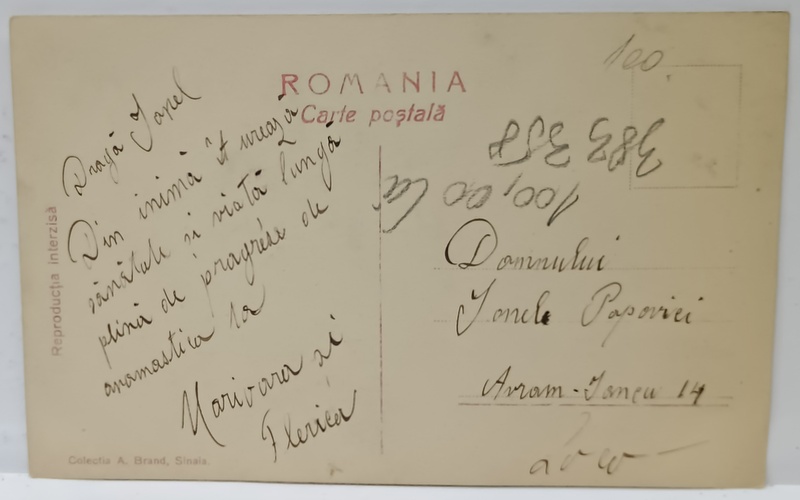 ROMANIA
Carte poștală
100
383 358
100,00 lei
Dragă Ionel
Din inimă îți urează
sănătate și viată lungă
plină de progrese de
anamastica ta
Marioara și
Florica
Domnului
Ionele Popovici
Avram-Iancu 14
Loco
Reproducția interzisă
Colecția A. Brand, Sinaia.